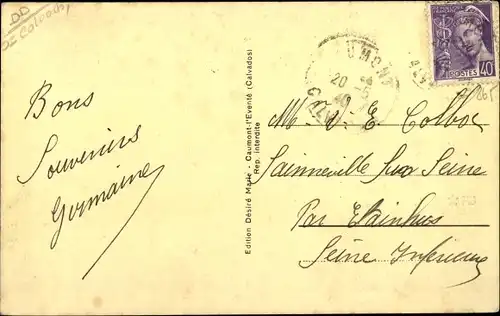 DD
Calvados
Bons
Souvenirs
Germaine
Edition Désiré Marie - Caumont-l'Eventé (Calvados)
Rep. interdite
UMONT
20
-5
40
POSTES 40
M. V. E. Colboc
Sainneville sur Seine
Par Etainhus
Seine Inférieure